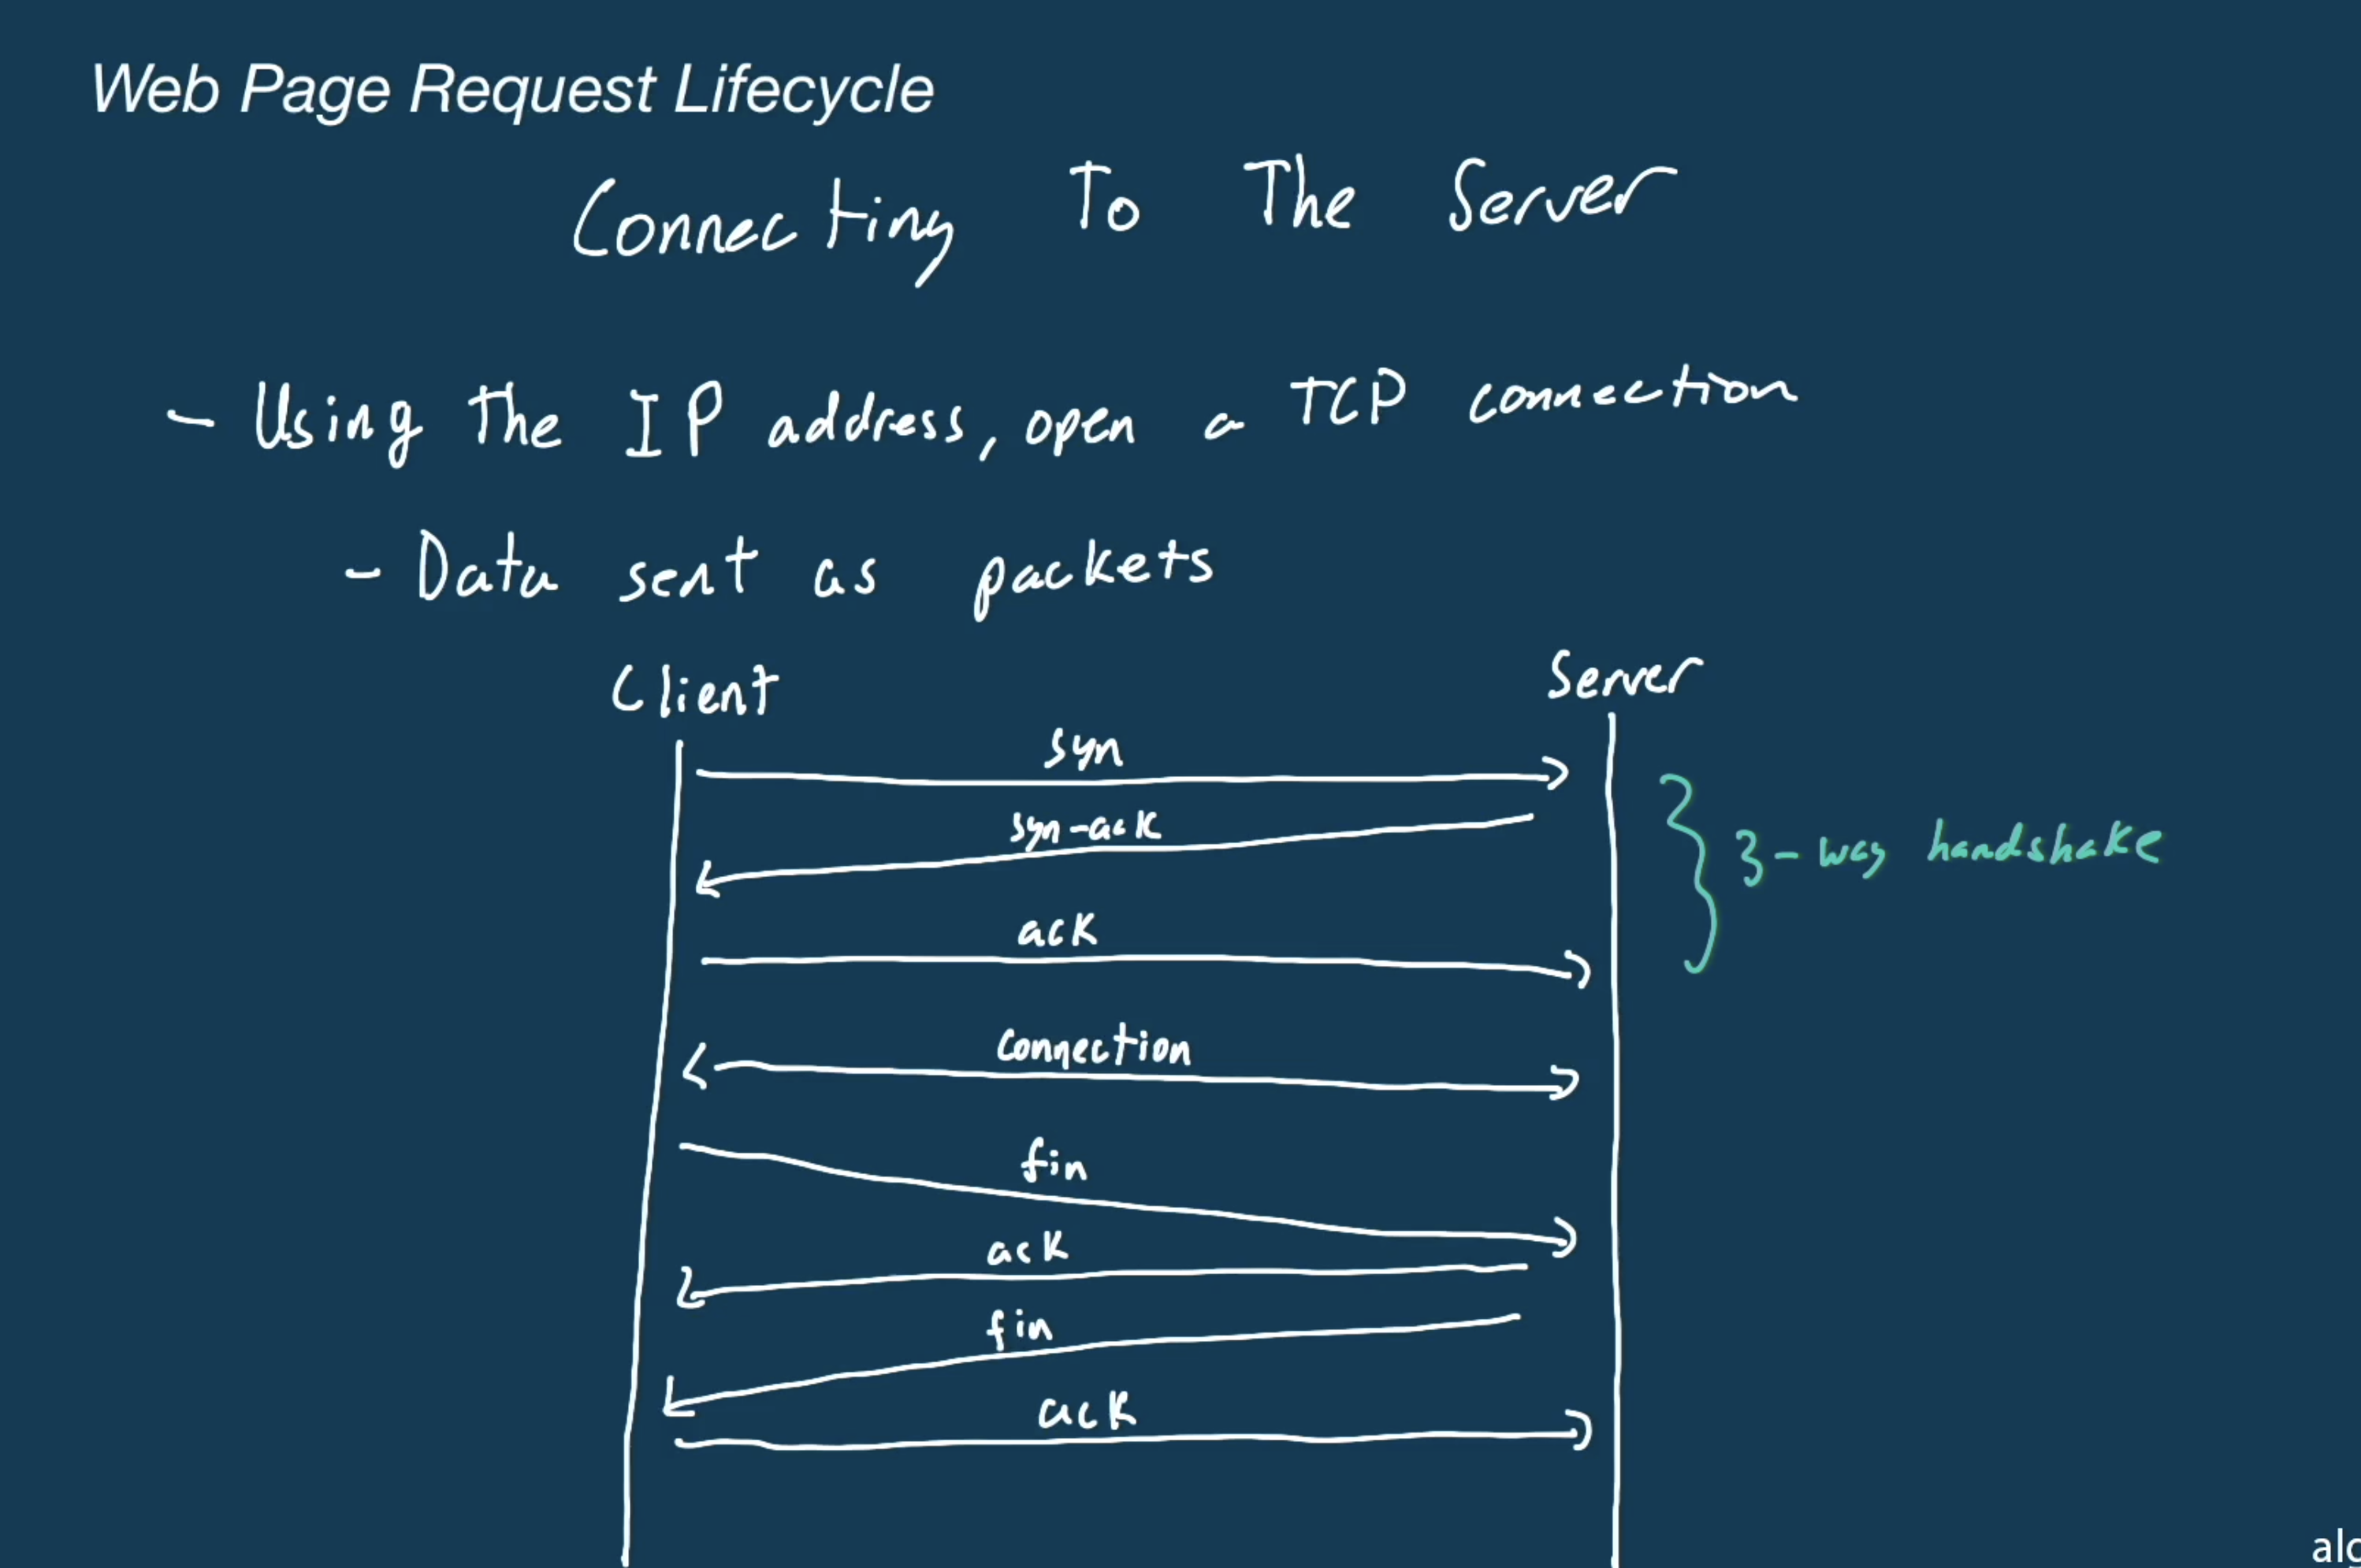 Web Page Request Lifecycle
Connecting To The Server
- Using the IP address, open a TCP connection
- Data sent as packets
Client
Server
syn
syn-ack
3-way handshake
ack
connection
fin
ack
fin
ack